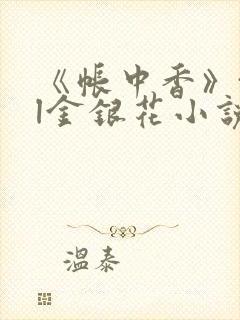 《帐中香》
|金银花小说
温泰